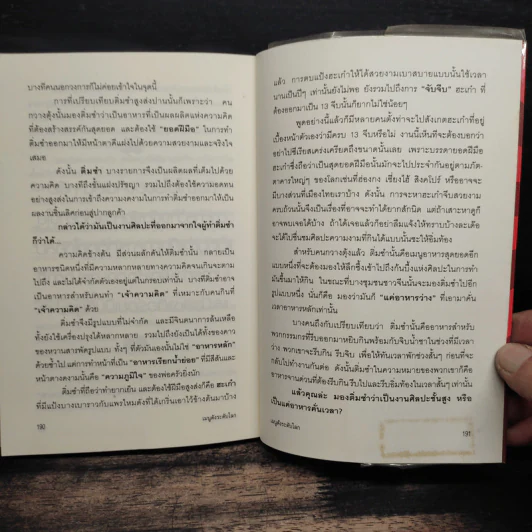 บางทีคนนอกวงการก็ไม่ค่อยเข้าใจในจุดนี้
การที่เปรียบเทียบติ่มซำสูงส่งปานนั้นก็เพราะว่า คน
กวางตุ้งนั้นมองติ่มซำว่าเป็นอาหารที่เป็นผลผลิตแห่งความคิด
ที่ต้องสร้างสรรค์กันสุดยอด และต้องใช้ "ยอดฝีมือ" ในการทำ
ติ่มซำออกมาให้มีหน้าตาดีแฝงไปด้วยความสวยงามและจริงใจ
เสมอ
ดังนั้น ติ่มซำ บางรายการจึงเป็นผลิตผลที่เต็มไปด้วย
ความคิด บางทีถึงขั้นแฝงปรัชญา รวมไปถึงต้องใช้ความอดทน
อย่างสูงส่งในการเข้าถึงความงดงามในการทำติ่มซำออกมาให้เป็น
ผลงานชิ้นเลิศก่อนสู่ปากลูกค้า
กล่าวได้ว่ามันเป็นงานศิลปะที่ออกมาจากใจผู้ทำติ่มซำ
ก็ว่าได้...
ความคิดข้างต้น มีส่วนผลักดันให้ติ่มซำนั้น กลายเป็น
อาหารชนิดหนึ่งที่มีความหลากหลายทางความคิดจนเกินจะตาม
ไปถึง และไม่ได้จำกัดตัวเองอยู่แต่ในกรอบเท่านั้น บางทีติ่มซำอาจ
เป็นอาหารสำหรับคนทำ "เจ้าความคิด" ที่เหมาะกับคนกินที่
"เจ้าความคิด" ด้วย
ติ่มซำจึงมีรูปแบบที่ไม่จำกัด และมีจินตนาการล้นเหลือ
ทั้งยังใช้เครื่องปรุงได้หลากหลาย รวมไปถึงยังเป็นได้ทั้งของคาว
ของหวานสารพัดรูปแบบ ทั้งๆ ที่ตัวมันเองนั้นไม่ใช่ "อาหารหลัก"
ด้วยซ้ำไป แต่การทำหน้าที่เป็น "อาหารเรียกน้ำย่อย" ที่มีสีสันและ
หน้าตางดงามนั้นคือ "ความภูมิใจ" ของพ่อครัวยิ่งนัก
ติ่มซำที่ถือว่าทำยากเย็น และต้องใช้ฝีมือสูงส่งก็คือ ฮะเก๋า
ที่มีแป้งบางเบาราวกับแพรไหมดังที่ได้เกริ่นเอาไว้ข้างต้นมาบ้าง
190 เมนูดังระดับโลก
แล้ว การตบแป้งฮะเก๋าให้ได้สวยงามเบาสบายแบบนั้นใช้เวลา
นานเป็นปีๆ เท่านั้นยังไม่พอ ยังรวมไปถึงการ "จับจีบ" ฮะเก๋า ที่
ต้องออกมาเป็น 13 จีบนั้นก็ยากไม่ใช่น้อยๆ
พูดอย่างนี้แล้วก็มีหลายคนตั้งท่าจะไปสังเกตฮะเก๋าที่อยู่
เบื้องหน้าตัวเองว่ามีครบ 13 จีบหรือไม่ งานนี้เห็นทีจะต้องบอกว่า
อย่าไปซีเรียสเคร่งเครียดถึงขนาดนั้นเลย เพราะบรรดายอดฝีมือ
ฮะเก๋าซึ่งถือว่าเป็นสุดยอดฝีมือนั้นมักจะไปประจำกันอยู่ตามภัต-
ตาคารใหญ่ๆ ของโลกเช่นที่ฮ่องกง เซี่ยงไฮ้ สิงคโปร์ หรืออาจจะ
มีบางส่วนที่เมืองไทยเราบ้าง ดังนั้น การจะหาฮะเก๋าจีบสวยงาม
ครบถ้วนนั้นจึงเป็นเรื่องที่อาจจะทำได้ยากสักนิด แต่ถ้าเสาะหาดูก็
อาจพบเจอได้บ้าง ถ้าได้เจอแล้วก็อย่าลืมแจ้งให้ทราบบ้างละเดียว
จะได้ไปชื่นชมศิลปะความงามที่กินได้แบบนั้นซะให้อิ่มท้อง
สำหรับคนกวางตุ้งแล้ว ติ่มซำนั้นคือเมนูอาหารสุดยอดอีก
แบบหนึ่งที่จะต้องมองให้ลึกซึ้งเข้าไปถึงกันบึ้งแห่งศิลปะในการทำ
มันขึ้นมาให้กิน ในขณะที่บางชุมชนชาวจีนนั้นจะมองติ่มซำไปอีก
รูปแบบหนึ่ง นั่นก็คือ มองว่ามันก็ "แค่อาหารว่าง" ที่เอามาคั่น
เวลาอาหารหลักเท่านั้น
บางคนถึงกับเปรียบเทียบว่า ติ่มซำนั้นคืออาหารสำหรับ
พวกกรรมกรที่รีบออกมาหยิบกินพร้อมกับจิบน้ำชาในช่วงที่มีเวลา
ว่าง พวกเขาจะรีบกิน รีบจิบ เพื่อให้ทันเวลาพักช่วงสั้นๆ ก่อนที่จะ
กลับไปทำงานกันต่อ ดังนั้นติ่มซำในความหมายของพวกเขาก็คือ
อาหารจานด่วนที่ต้องรีบกิน รีบไปและรีบอิ่มท้องในเวลาสั้นๆ เท่านั้น
แล้วคุณล่ะ มองติ่มซำว่าเป็นงานศิลปะชั้นสูง หรือ
เป็นแค่อาหารคั่นเวลา?
เมนูดังระดับโลก 191